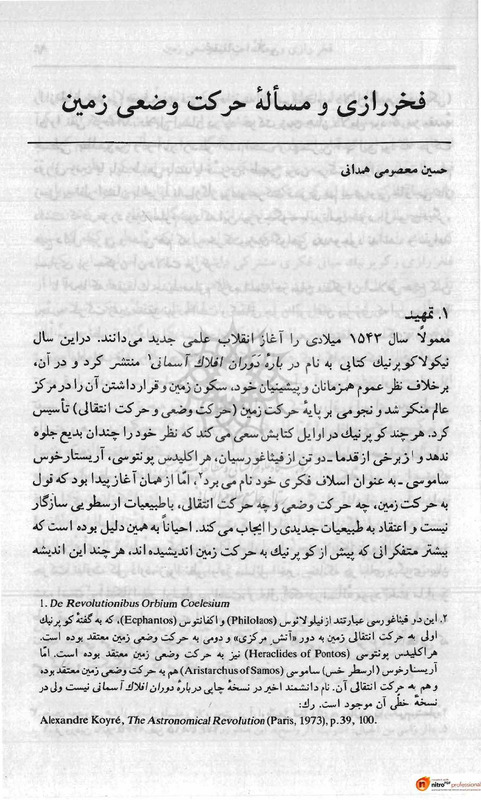 فخررازی و مسألهٔ حرکت وضعی زمین
حسین معصومی همدانی
۱. تمهید
معمولاً سال ۱۵۴۳ میلادی را آغاز انقلاب علمی جدید می‌دانند. دراین سال
نیکولاکوپرنیك کتابی به نام در بارهٔ دَوَران افلاك آسمانی۱ منتشر کرد و در آن،
برخلاف نظر عموم همزمانان و پیشینیان خود، سکون زمین و قرار داشتن آن را در مرکز
عالم منکر شد و نجومی بر پایهٔ حرکت زمین (حرکت وضعی و حرکت انتقالی) تأسیس
کرد. هر چند کوپرنیك در اوایل کتابش سعی می‌کند که نظر خود را چندان بدیع جلوه
ندهد و از برخی از قدما ـ دو تن از فیثاغورسیان، هراکلیدس پونتوسی، آریستارخوس
ساموسی ـ به عنوان اسلاف فکری خود نام می‌برد۲، امّا از همان آغاز پیدا بود که قول
به حرکت زمین، چه حرکت وضعی و چه حرکت انتقالی، باطبیعیات ارسطویی سازگار
نیست و اعتقاد به طبیعیات جدیدی را ایجاب می‌کند. احیاناً به همین دلیل بوده است که
بیشتر متفکرانی که پیش از کوپرنیك به حرکت زمین اندیشیده‌اند، هر چند این اندیشه
1. De Revolutionibus Orbium Coelesium
۲. این دو فیثاغورسی عبارتند از فیلولائوس (Philolaos) و اکفانتوس (Ecphantos)، که به گفتهٔ کوپرنیك
اولی به حرکت انتقالی زمین به دور «آتش مرکزی» و دومی به حرکت وضعی زمین معتقد بوده است.
هراکلیدس پونتوسی (Heraclides of Pontos) نیز به حرکت وضعی زمین معتقد بوده است. امّا
آریستارخوس (ارسطر خس) ساموسی (Aristarchus of Samos) هم به حرکت وضعی زمین معتقد بوده
و هم به حرکت انتقالی آن. نام دانشمند اخیر در نسخهٔ چاپی دربارهٔ دوران افلاك آسمانی نیست ولی در
نسخهٔ خطّی آن موجود است. رك:
Alexandre Koyré, The Astronomical Revolution (Paris, 1973), p. 39, 100.
nitro professional